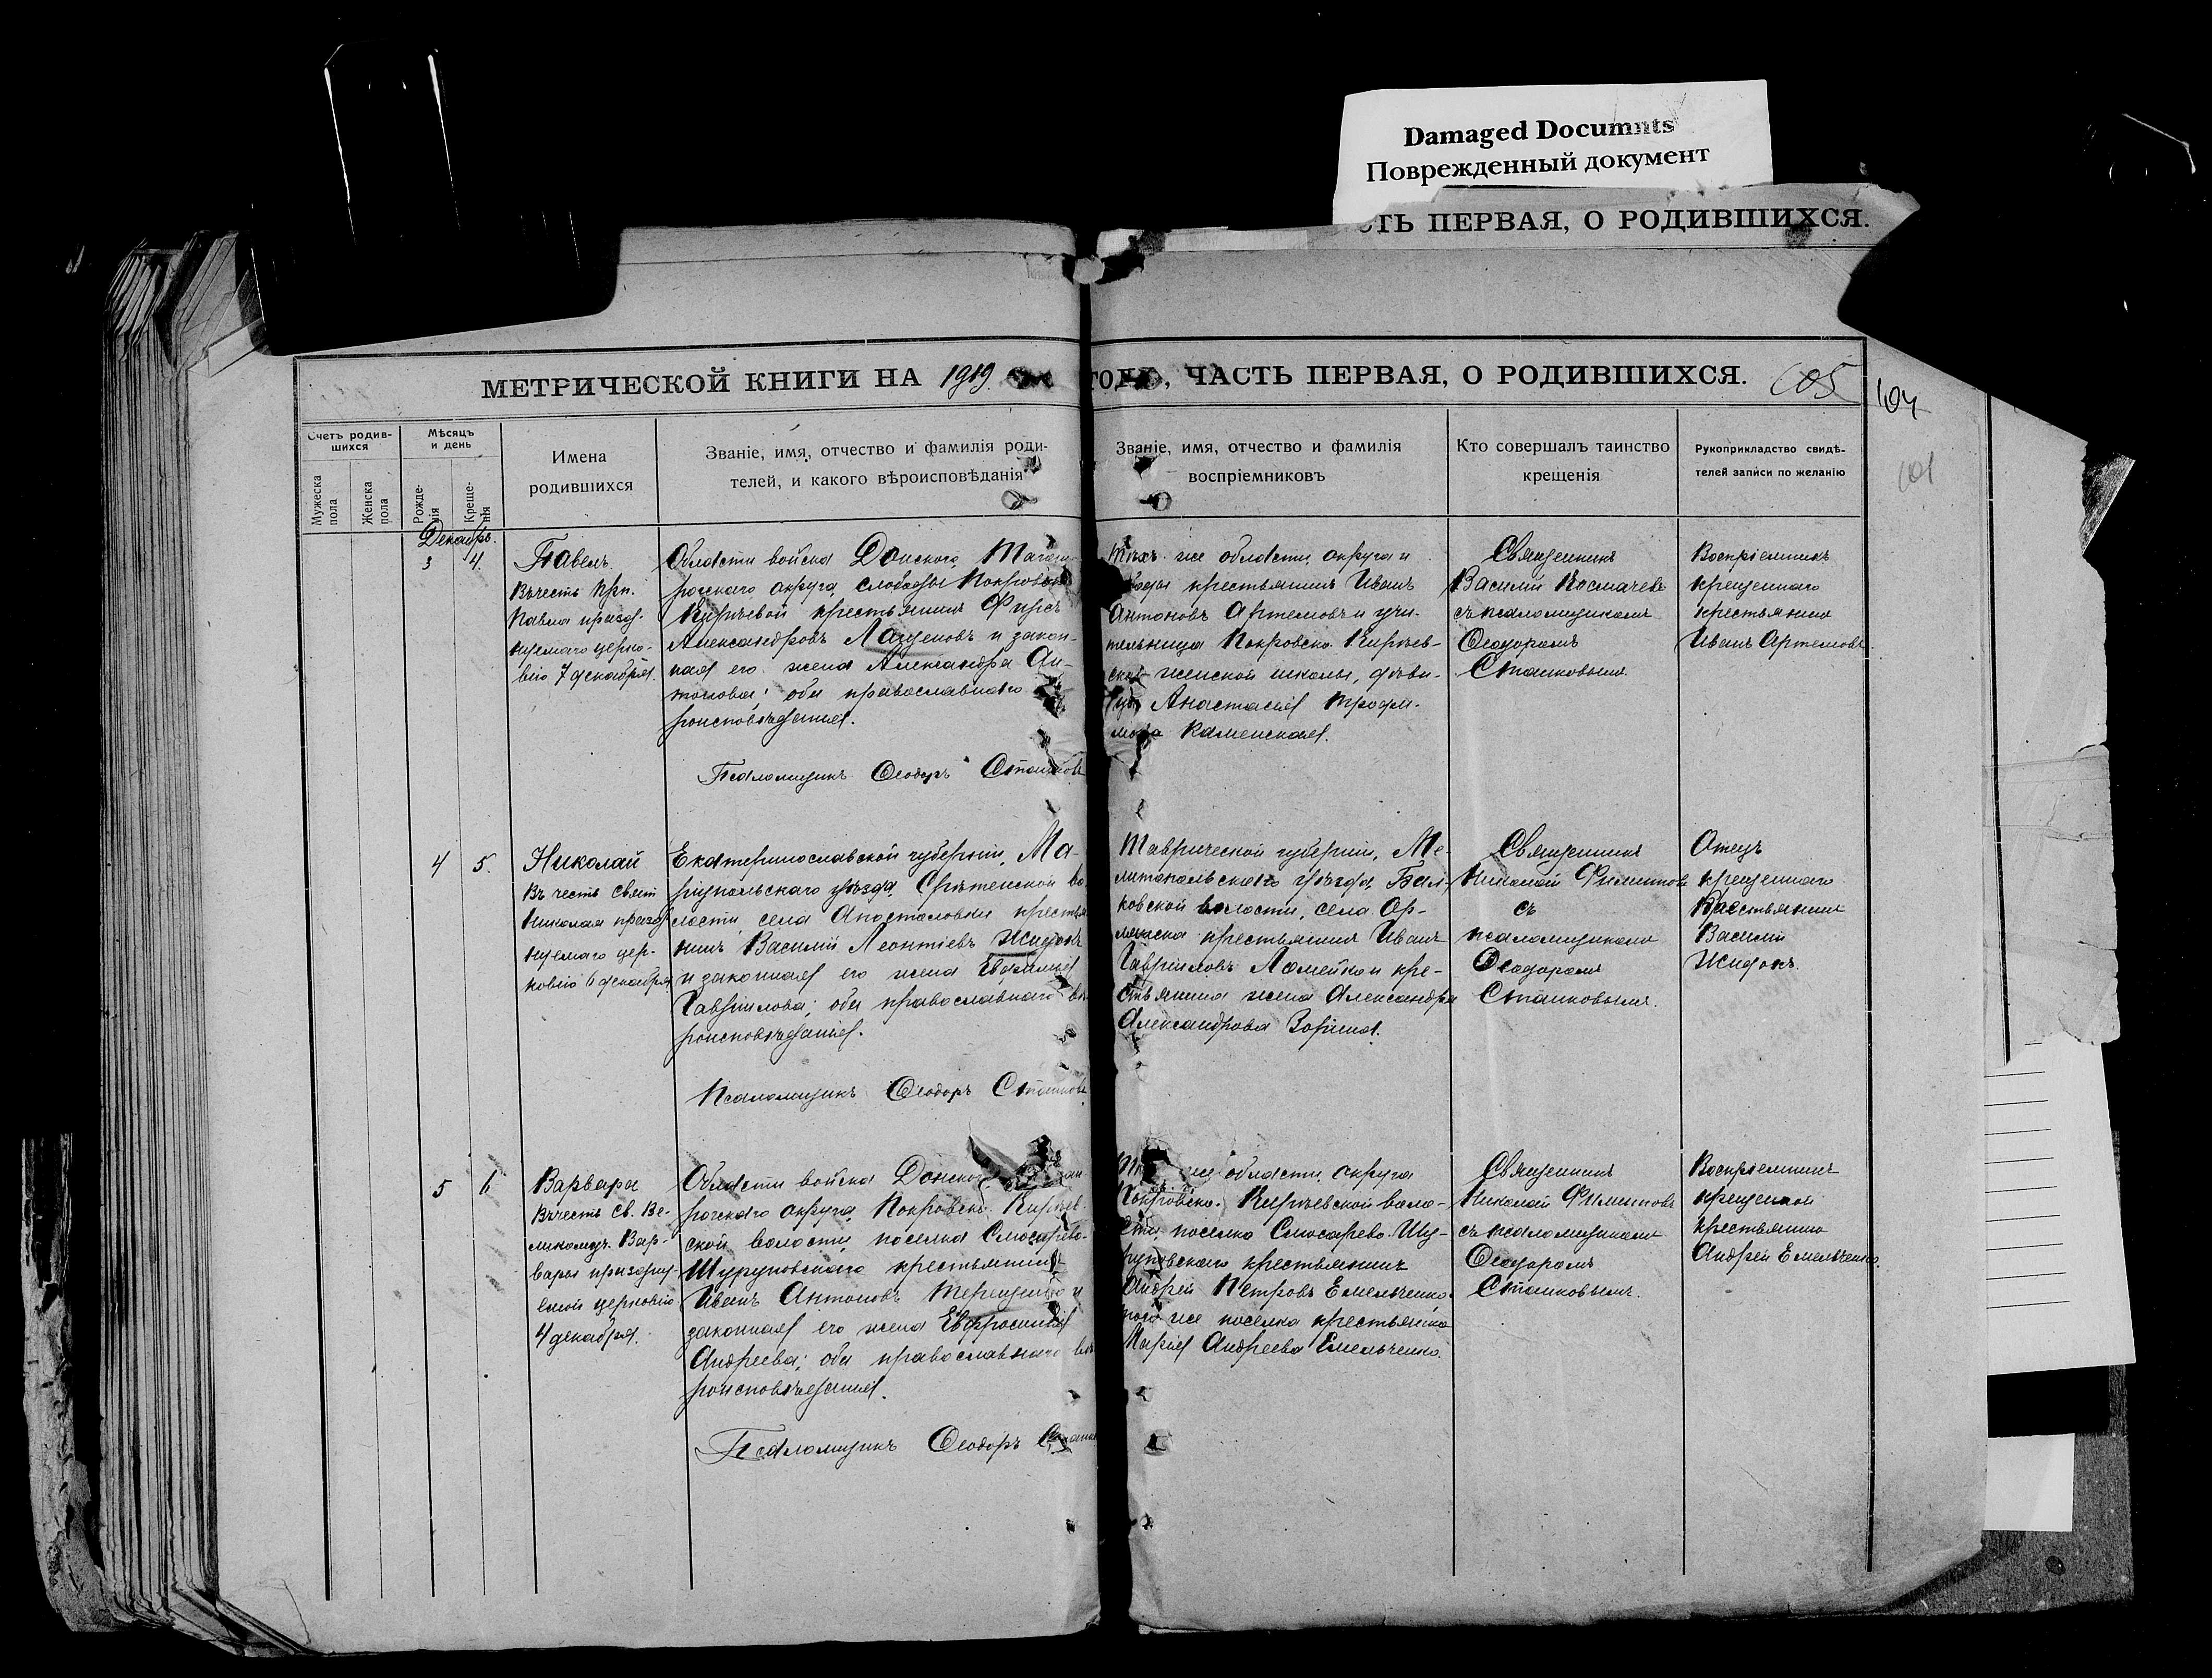 Damaged Documnts
Поврежденный документ
СТЬ ПЕРВАЯ, О РОДИВШИХСЯ.
МЕТРИЧЕСКОЙ КНИГИ НА 1919 ГОДЪ, ЧАСТЬ ПЕРВАЯ, О РОДИВШИХСЯ.
105
104
Счетъ родив-
шихся
Мужеска
пола
Женска
пола
Мѣсяцъ
и день
Рожде-
нія
Креще-
нія
Имена
родившихся
Званіе, имя, отчество и фамилія роди-
телей, и какого вѣроисповѣданія
Званіе, имя, отчество и фамилія
воспріемниковъ
Кто совершалъ таинство
крещенія
Рукоприкладство свидѣ-
телей записи по желанію
Декабрь.
3 4.
Павелъ.
Въ честь прп.
Павла празд-
нуемаго церко-
вію 7 декабря.
Области войска Донского, Таган-
рогскаго округа, слободы Покровско-
Кирѣевой крестьянинъ Фирсъ
Александровъ Лащеновъ и закон-
ная его жена Александра Ан-
тонова; оба православнаго
роисповѣданія.
Псаломщикъ Ѳеодоръ Станков
Тѣхъ же области, округа и
слободы крестьянинъ Иванъ
Антоновъ Артемовъ и учи-
тельница Покровско-Кирѣев-
ской женской школы, дѣви-
ца Анастасія Трофи-
мова Каменская.
Священникъ
Василій Космачевъ
съ псаломщикомъ
Ѳеодоромъ
Станковымъ.
Воспріемникъ
крещеннаго
крестьянинъ
Иванъ Артемовъ.
4 5.
Николай
Въ честь свят.
Николая празд-
нуемаго цер-
ковію 6 декабря
Екатеринославской губерніи, Ма-
ріупольскаго уѣзда, Срѣтенской во-
лости, села Апостоловки крестья-
нинъ Василій Леонтіевъ Жидокъ
и законная его жена Евфимія
Гавріилова; оба православнаго вѣ-
роисповѣданія.
Псаломщикъ Ѳеодоръ Станковъ
Таврической губерніи, Ме-
литопольскаго уѣзда, Бал-
ковской волости, села Ор-
лянска крестьянинъ Иванъ
Гавріиловъ Ломейко и кре-
стьянина жена Александра
Александрова Зорина.
Священникъ
Николай Филипповъ
съ
псаломщикомъ
Ѳеодоромъ
Станковымъ.
Отецъ
крещеннаго
Крестьянинъ
Василій
Жидокъ.
5 6
Варвара
Въ честь св. Ве-
ликомуч. Вар-
вары празднуу-
емой церковію
4 декабря.
Области войска Донского,
рогскаго округа, Покровско-Кирѣев-
ской волости, поселка Слюсарево-
Шуруповскаго крестьянинъ
Иванъ Антоновъ Терещенко и
законная его жена Евфросинія
Андреева; оба православнаго вѣ-
роисповѣданія.
Псаломщикъ Ѳеодоръ
же области, округа
Покровско-Кирѣевской воло-
сти, поселка Слюсарево-Шу-
руповскаго крестьянинъ
Андрей Петровъ Емельченко
того же поселка крестьянка
Марія Андреева Емельченко.
Священникъ
Николай Филипповъ
съ псаломщикомъ
Ѳеодоромъ
Станковымъ.
Воспріемникъ
крещенной
крестьянинъ
Андрей Емельченко.